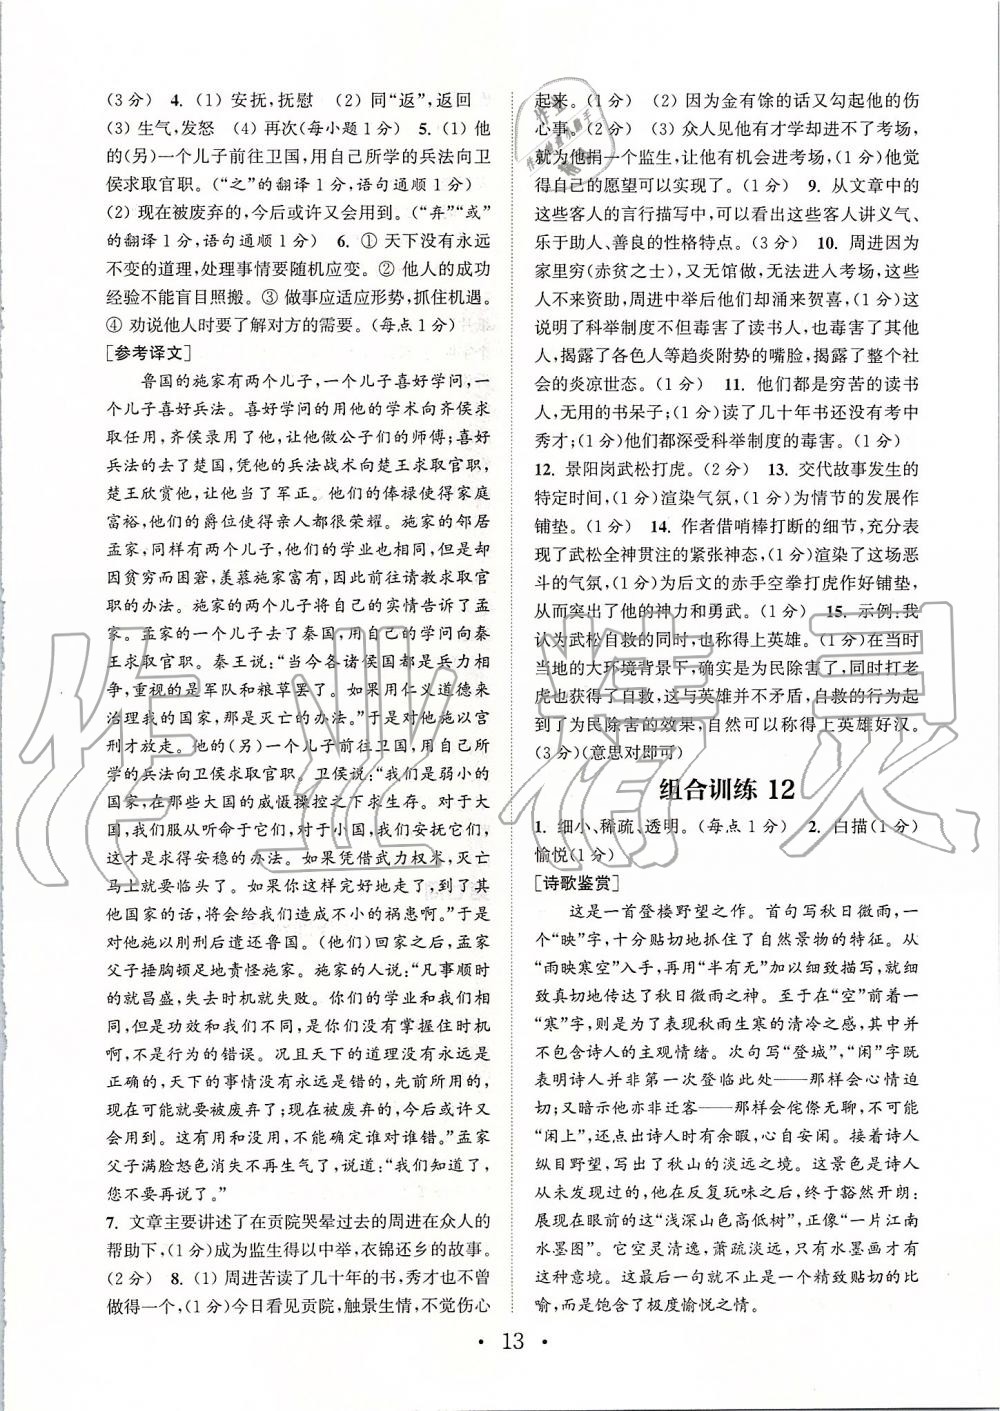 (3分) 4. (1) 安抚,抚慰 (2) 同“返”,返回
(3) 生气,发怒 (4) 再次(每小题1分) 5. (1) 他
的(另)一个儿子前往卫国,用自己所学的兵法向卫
侯求取官职。(“之”的翻译1分,语句通顺1分)
(2) 现在被废弃的,今后或许又会用到。(“弃”“或”
的翻译1分,语句通顺1分) 6. ① 天下没有永远
不变的道理,处理事情要随机应变。② 他人的成功
经验不能盲目照搬。③ 做事应适应形势,抓住机遇。
④ 劝说他人时要了解对方的需要。(每点1分)
[参考译文]
鲁国的施家有两个儿子,一个儿子喜好学问,一
个儿子喜好兵法。喜好学问的用他的学术向齐侯求
取任用,齐侯录用了他,让他做公子们的师傅;喜好
兵法的去了楚国,凭他的兵法战术向楚王求取官职,
楚王欣赏他,让他当了军正。他们的俸禄使得家庭
富裕,他们的爵位使得亲人都很荣耀。施家的邻居
孟家,同样有两个儿子,他们的学业也相同,但是却
因贫穷而困窘,羡慕施家富有,因此前往请教求取官
职的办法。施家的两个儿子将自己的实情告诉了孟
家。孟家的一个儿子去了秦国,用自己的学问向秦
王求取官职。秦王说:“当今各诸侯国都是兵力相
争,重视的是军队和粮草罢了。如果用仁义道德来
治理我的国家,那是灭亡的办法。”于是对他施以宫
刑才放走。他的(另)一个儿子前往卫国,用自己所
学的兵法向卫侯求取官职。卫侯说:“我们是弱小的
国家,在那些大国的威慑操控之下求生存。对于大
国,我们服从听命于它们,对于小国,我们安抚它们,
这才是求得安稳的办法。如果凭借武力权术,灭亡
马上就要临头了。如果你这样完好地走了,到了其
他国家的话,将会给我们造成不小的祸患啊。”于是
对他施以刖刑后遣还鲁国。(他们)回家之后,孟家
父子捶胸顿足地责怪施家。施家的人说:“凡事顺时
的就昌盛,失去时机就失败。你们的学业和我们相
同,但是功效和我们不同,是你们没有掌握住时机
啊,不是行为的错误。况且天下的道理没有永远是
正确的,天下的事情没有永远是错的,先前所用的,
现在可能就要被废弃了;现在被废弃的,今后或许又
会用到。这有用和没用,不能确定谁对谁错。”孟家
父子满脸怒色消失不再生气了,说道:“我们知道了,
您不要再说了。”
7. 文章主要讲述了在贡院哭晕过去的周进在众人的
帮助下,(1分)成为监生得以中举,衣锦还乡的故事。
(2分) 8. (1) 周进苦读了几十年的书,秀才也不曾
做得一个,(1分)今日看见贡院,触景生情,不觉伤心
起来。(1分) (2) 因为金有馀的话又勾起他的伤
心事。(2分) (3) 众人见他有才学却进不了考场,
就为他捐一个监生,让他有机会进考场。(1分)他觉
得自己的愿望可以实现了。(1分) 9. 从文章中的
这些客人的言行描写中,可以看出这些客人讲义气、
乐于助人、善良的性格特点。(3分) 10. 周进因为
家里穷(赤贫之士),又无馆做,无法进入考场,这些
人不来资助,周进中举后他们却涌来贺喜,(1分)这
说明了科举制度不但毒害了读书人,也毒害了局外
人,揭露了各色人等趋炎附势的嘴脸,揭露了整个社
会的炎凉世态。(1分) 11. 他们都是穷苦的读书
人,无用的书呆子;(1分)读了几十年书还没有考中
秀才;(1分)他们都深受科举制度的毒害。(1分)
12. 景阳岗武松打虎。(2分) 13. 交代故事发生的
特定时间,(1分)渲染气氛,(1分)为情节的发展作
铺垫。(1分) 14. 作者借哨棒打断的细节,充分表
现了武松全神贯注的紧张神态,(1分)渲染了这场恶
斗的气氛,(1分)为后文的赤手空拳打虎作好铺垫,
从而突出了他的神力和勇武。(1分) 15. 示例:我
认为武松自救的同时,也称得上英雄。(1分)在当时
当地的大环境背景下,确实是为民除害了,同时打老
虎也获得了自救,这与英雄并不矛盾,自救的行为起
到了为民除害的效果,自然可以称得上英雄好汉。
(3分)(意思对即可)
组合训练 12
1. 细小、稀疏、透明。(每点1分) 2. 白描(1分)
愉悦(1分)
[诗歌鉴赏]
这是一首登楼野望之作。首句写秋日微雨,用
一个“映”字,十分贴切地抓住了自然景物的特征。从
“雨映寒空”入手,再用“半有无”加以细致描写,就细
致真切地传达了秋日微雨之神。至于在“空”前着一
“寒”字,则是为了表现秋雨生寒的清冷之感,其中并
不包含诗人的主观情绪。次句写“登城”,“闲”字既
表明诗人并非第一次登临此处——那样会心情迫
切;又暗示他亦非迁客——那样会侘傺无聊,不可能
“闲上”,还点出诗人时有余暇,心自安闲。接着诗人
纵目野望,写出了秋山的淡远之境。这景色是诗人
从未发现过的,他在反复玩味之后,终于豁然开朗:
展现在眼前的“浅深山色高低树”,正像“一片江南
水墨图”。它空灵清逸,萧疏淡远,只有水墨画才有
这种意境。这最后一句就不止是一个精致贴切的比
喻,而是饱含了极度愉悦之情。
• 13 •
作业精灵